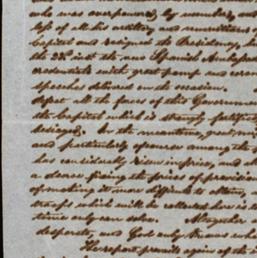 who was overpowered by numbers, and
loss of all his artillery and munitions of
Capitol and resigned the Presidency, 
the 23d inst the new Spanish Ambassad
credentials with great pomp and cerem
speeches delivered on the occasion.
defeat all the forces of this Governmen
the Capitol which is strongly fortified
besieged. In the meantime, great 
and particularly of course among the p
has considerably risen in price, and 
a decree fixing the price of provision
of making it more difficult to obtain
troops which will be collected here is 
time only can solve. Altogether
desperate, and God only knows wh
The report prevails again of the